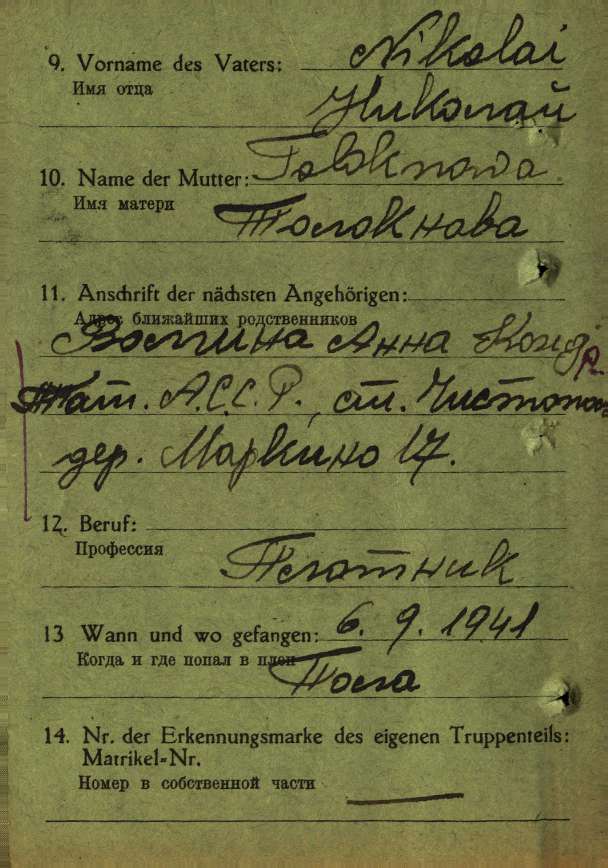 9. Vorname des Vaters: Nikolai
Имя отца
Николай
10. Name der Mutter: Toloknowa
Имя матери
Толокнова
11. Anschrift der nächsten Angehörigen:
Адрес ближайших родственников
Волгина Анна Конд
Тат. А.С.С.Р., ст. Чистополь
дер. Маркино 17.
12. Beruf:
Профессия
Плотник
13 Wann und wo gefangen: 6. 9. 1941
Когда и где попал в плен
14. Nr. der Erkennungsmarke des eigenen Truppenteils:
Matrikel-Nr.
Номер в собственной части